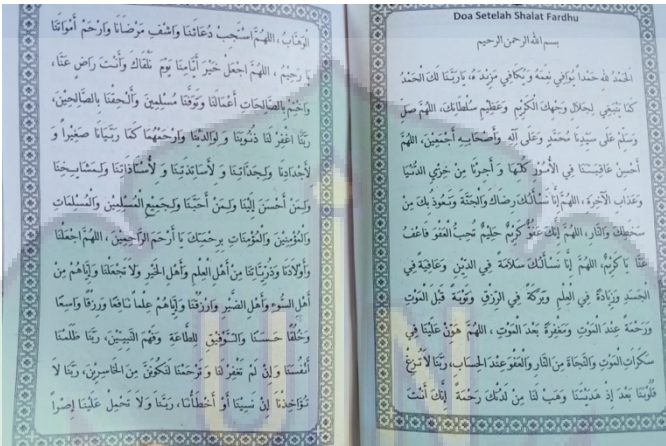 Doa Setelah Shalat Fardhu
بسم الله الرحمن الرحيم
الحَمْدُ لِلهِ حَمْداً يُوَافِي نِعَمَهُ وَيُكَافِي مَزِيْدَهُ، يَارَبَّنَا لَكَ الْحَمْدُ
كَمَا يَنْبَغِي لِجَلَالِ وَجْهِكَ الْكَرِيْمِ وَعَظِيْمِ سُلْطَانِكَ، اللهُمَّ صَلِّ
وَسَلِّمْ عَلَى سَيِّدِنَا مُحَمَّدٍ وَعَلَى آلِهِ وَأَصْحَابِهِ أَجْمَعِيْنَ، اللهُمَّ
أَحْسِنْ عَاقِبَتَنَا فِي الأُمُوْرِ كُلِّهَا وَ أَجِرْنَا مِنْ خِزْيِ الدُّنْيَا
وَعَذَابِ الآخِرَةِ، اللهُمَّ إِنَّا نَسْأَلُكَ رِضَاكَ وَالْجَنَّةَ وَنَعُوذُ بِكَ مِنْ
سَخَطِكَ وَالنَّارِ، اللهُمَّ إِنَّكَ عَفُوٌّ كَرِيْمٌ حَلِيْمٌ تُحِبُّ الْعَفْوَ فَاعْفُ
عَنَّا يَا كَرِيْمُ، اللهُمَّ إِنَّا نَسْأَلُكَ سَلَامَةً فِي الدِّيْنِ وَعَافِيَةً فِي
الْجَسَدِ وَزِيَادَةً فِي الْعِلْمِ وَبَرَكَةً فِي الرِّزْقِ وَتَوْبَةً قَبْلَ الْمَوْتِ
وَرَحْمَةً عِنْدَ الْمَوْتِ وَمَغْفِرَةً بَعْدَ الْمَوْتِ، اللهُمَّ هَوِّنْ عَلَيْنَا فِي
سَكَرَاتِ الْمَوْتِ وَالنَّجَاةَ مِنَ النَّارِ وَالْعَفْوَ عِنْدَ الْحِسَابِ، رَبَّنَا لَا تُزِغْ
قُلُوْبَنَا بَعْدَ إِذْ هَدَيْتَنَا وَهَبْ لَنَا مِنْ لَدُنْكَ رَحْمَةً إِنَّكَ أَنْتَ
الْوَهَّابُ، اللهُمَّ اسْتَجِبْ دُعَائَنَا وَاشْفِ مَرْضَانَا وَارْحَمْ أَمْوَاتَنَا
يَا رَحِيْمُ، اللهُمَّ اجْعَلْ خَيْرَ أَيَّامِنَا يَوْمَ نَلْقَاكَ وَأَنْتَ رَاضٍ عَنَّا،
وَاخْتِمْ بِالصَّالِحَاتِ أَعْمَالَنَا وَتَوَفَّنَا مُسْلِمِيْنَ وَأَلْحِقْنَا بِالصَّالِحِيْنَ،
رَبَّنَا اغْفِرْ لَنَا ذُنُوْبَنَا وَ لِوَالِدِيْنَا وَارْحَمْهُمَا كَمَا رَبَّيَانَا صَغِيْرًا وَ
لِأَجْدَادِنَا وَلِجَدَّاتِنَا وَ لِأَسَاتِذَتِنَا وَ لِأُسْتَاذَاتِنَا وَلِمَشَايِخِنَا
وَلِمَنْ أَحْسَنَ إِلَيْنَا وَلِمَنْ أَحَبَّنَا وَلِجَمِيْعِ الْمُسْلِمِيْنَ وَالْمُسْلِمَاتِ
وَالْمُؤْمِنِيْنَ وَالْمُؤْمِنَاتِ بِرَحْمَتِكَ يَا أَرْحَمَ الرَّاحِمِيْنَ، اللهُمَّ اجْعَلْنَا
وَأَوْلَادَنَا وَذُرِّيَّاتِنَا مِنْ أَهْلِ الْعِلْمِ وَأَهْلِ الْخَيْرِ وَلَا تَجْعَلْنَا وَإِيَّاهُمْ مِنْ
أَهْلِ السُّوْءِ وَأَهْلِ الضَّيْرِ وَارْزُقْنَا وَإِيَّاهُمْ عِلْمًا نَافِعًا وَرِزْقًا وَاسِعًا
وَخُلُقًا حَسَنًا وَالتَّوْفِيْقَ لِلطَّاعَةِ وَفَهْمَ النَّبِيِّيْنَ، رَبَّنَا ظَلَمْنَا
أَنْفُسَنَا وَإِنْ لَمْ تَغْفِرْ لَنَا وَتَرْحَمْنَا لَنَكُوْنَنَّ مِنَ الْخَاسِرِيْنَ، رَبَّنَا لَا
تُؤَاخِذْنَا إِنْ نَسِيْنَا أَوْ أَخْطَأْنَا، رَبَّنَا وَلَا تَحْمِلْ عَلَيْنَا إِصْرًا